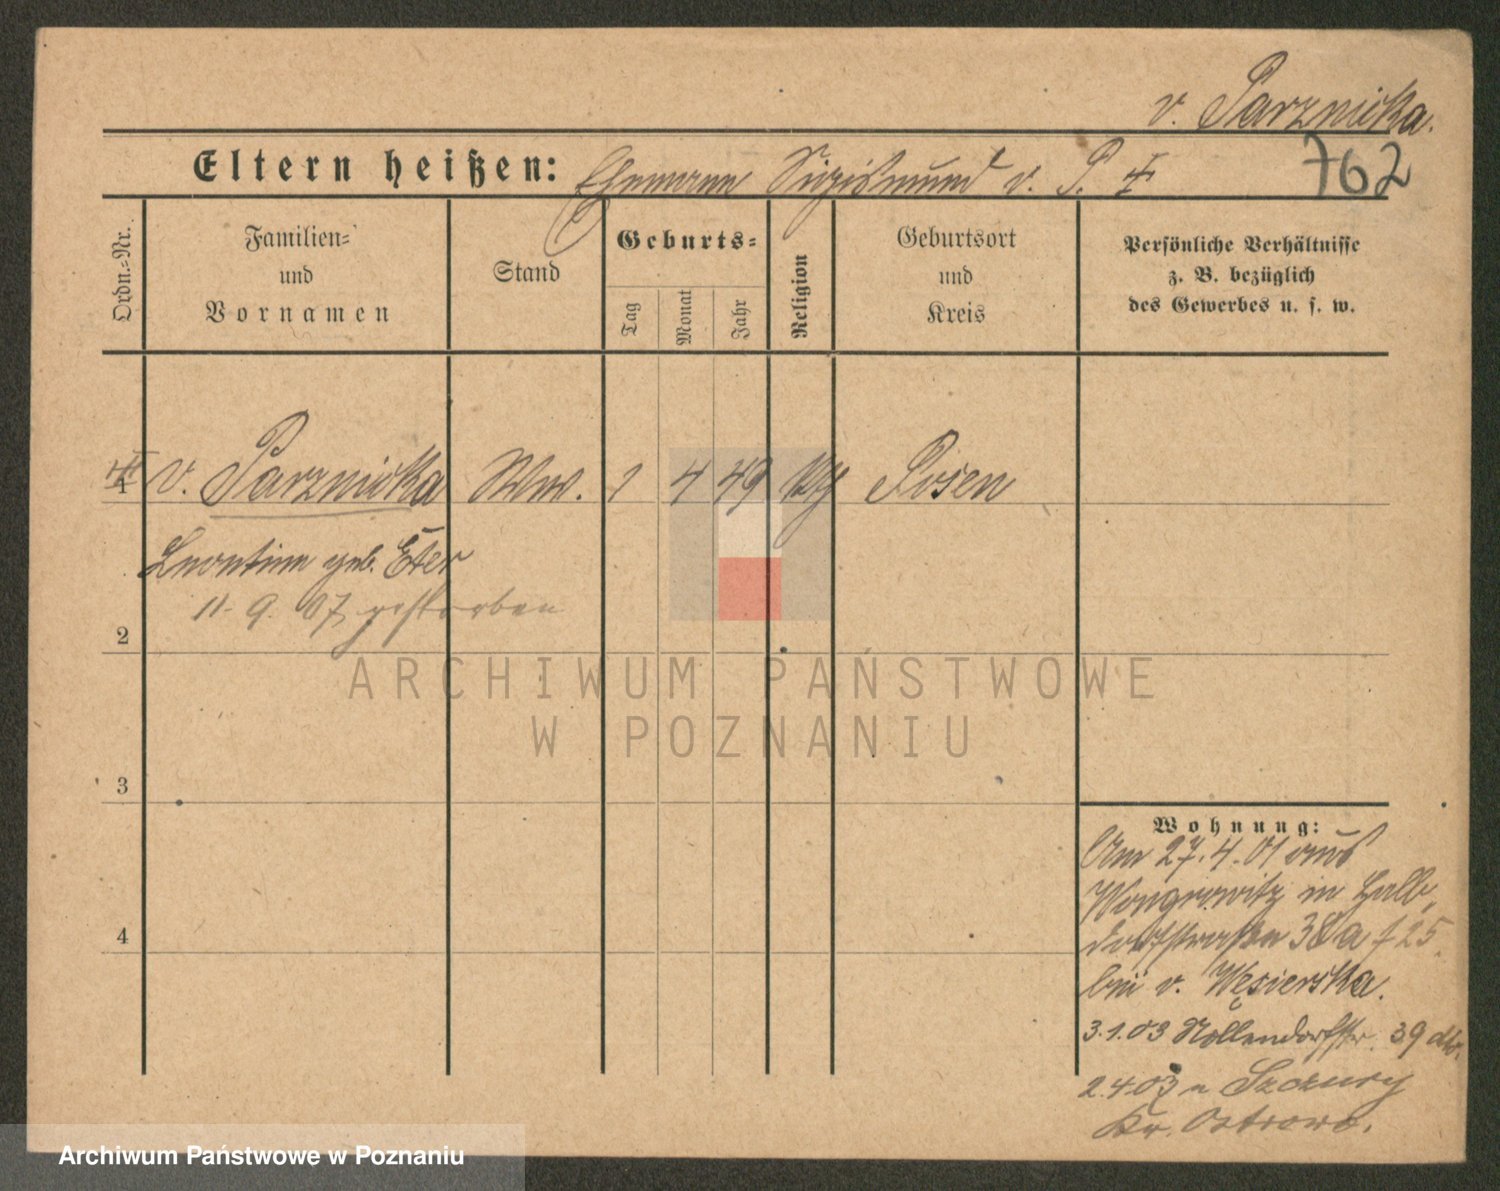 v. Parznicka.
Eltern heißen: Ehemann Sigismund v. P. ‡
762
Ordn.-Nr.
Familien-
und
Vornamen
Stand
Geburts-
Tag
Monat
Jahr
Religion
Geburtsort
und
Kreis
Persönliche Verhältnisse
z. B. bezüglich
des Gewerbes u. s. w.
1 v. Parznicka Ww. 1 4 49 Posen
Leontine geb. Eter
11. 9. 07 gestorben
2
3
4
Wohnung:
Am 27.4.01 aus
Wongrowitz in Halb-
dorfstraße 38a 725
bei v. Węsierska.
3.1.03 Nollendorfstr. 39 dto.
2.4.03 n Szczury
Kr. Ostrowo.
ARCHIWUM PAŃSTWOWE
W POZNANIU
Archiwum Państwowe w Poznaniu